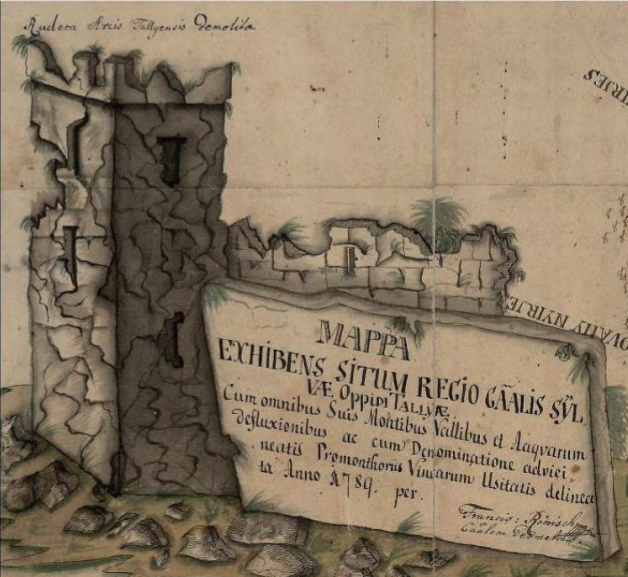 Rudera Arcis Tallyensis Demolita
MAPPA
EXHIBENS SITUM REGIO CÃALIS SŸL
VÆ OppiDI TALLYÆ
Cum omnibus Suis Montibus Vallibus et Aaqvarum
defluxionibus ac cum Denominatione advici
neatis Promonthoriis Vinearum Usitatis delinea
ta Anno 1789. per.
Francis:
OVATIŸ NYIRJE
IRJES